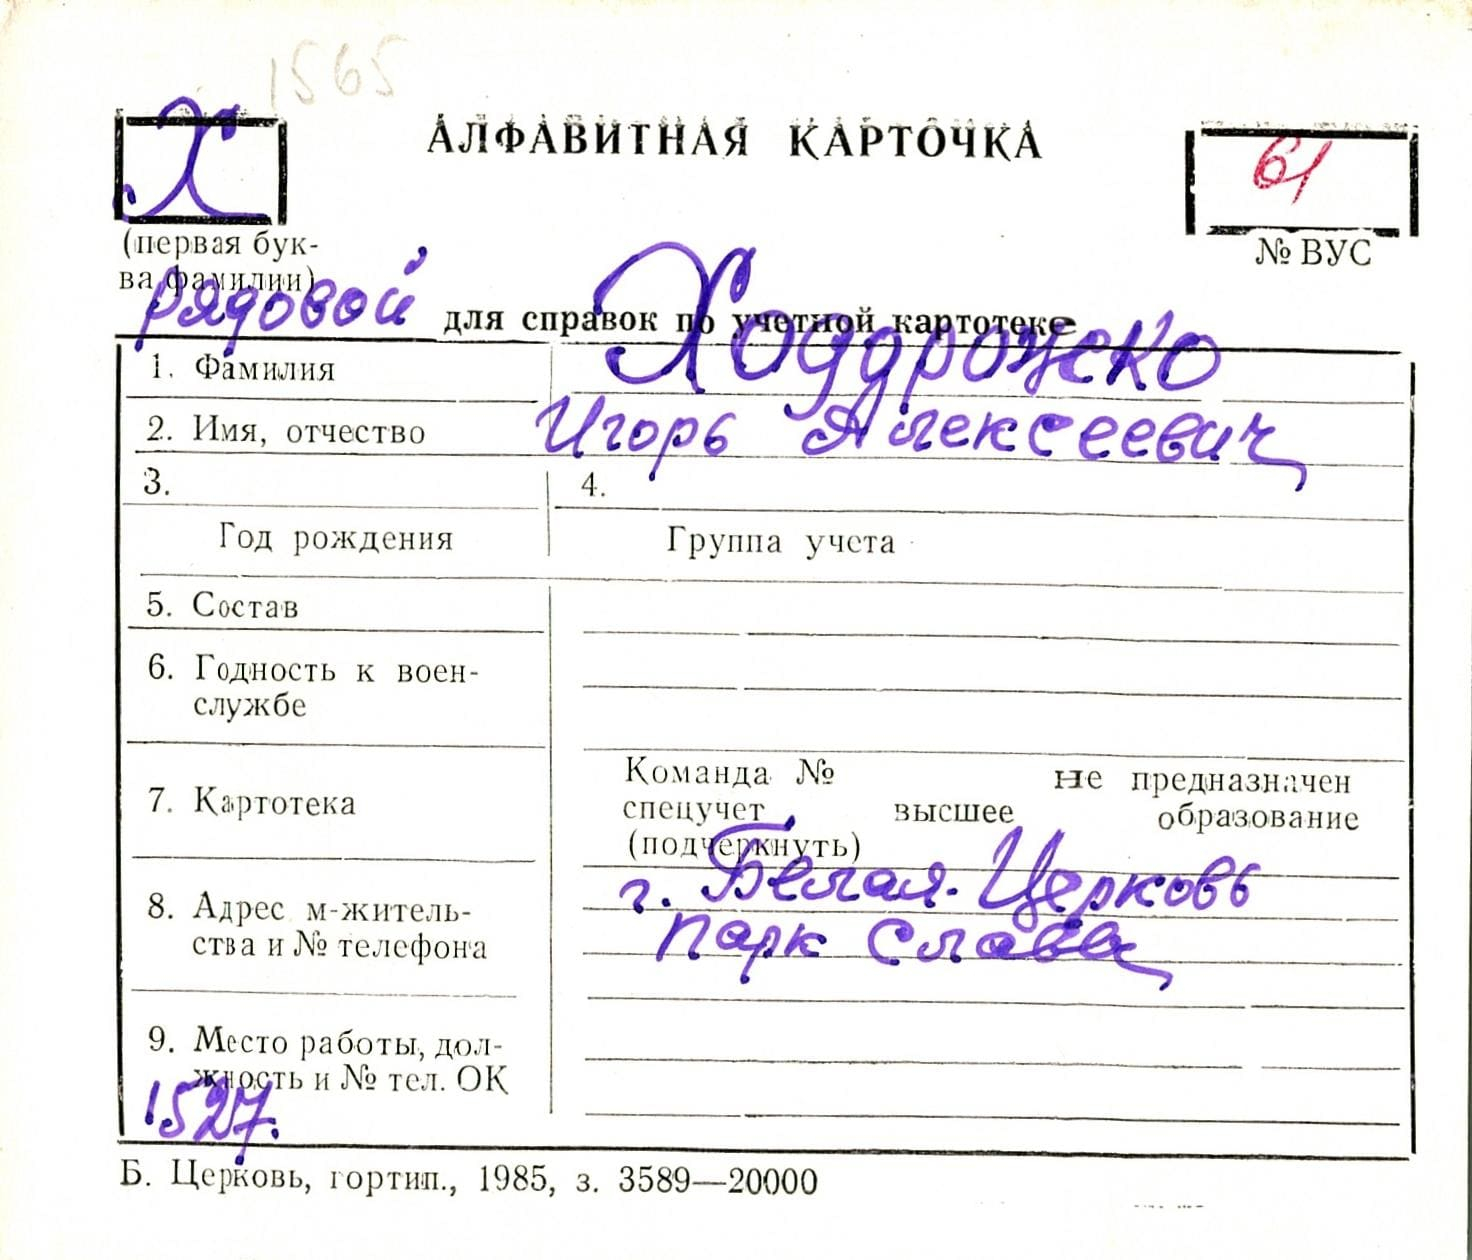 1565
Х
АЛФАВИТНАЯ КАРТОЧКА
61
(первая бук-
ва фамилии)
№ ВУС
рядовой
для справок по учетной картотеке
1. Фамилия
Ходдрожско
2. Имя, отчество
Игорь Алексеевич
3.
4.
Год рождения
Группа учета
5. Состав
6. Годность к воен-
службе
7. Картотека
Команда № не предназначен
спецучет, высшее образование
(подчеркнуть)
8. Адрес м-житель-
ства и № телефона
г. Белая-Церковь
парк Славы
9. Место работы, дол-
жность и № тел. ОК
1527.
Б. Церковь, гортип., 1985, з. 3589—20000